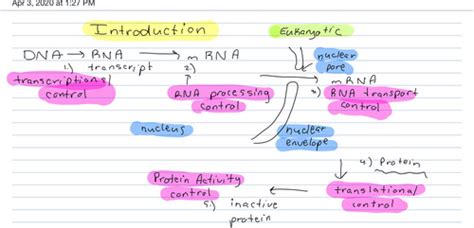 Apr 3, 2020 at 1:27 PM
Introduction
Eukaryotic
DNA → RNA → mRNA
1) transcript 2)
nuclear
pore
mRNA
transcriptional
control
RNA processing
control
3) RNA transport
control
nucleus
nuclear
envelope
4) Protein
Protein Activity
control
translational
control
5) inactive
protein